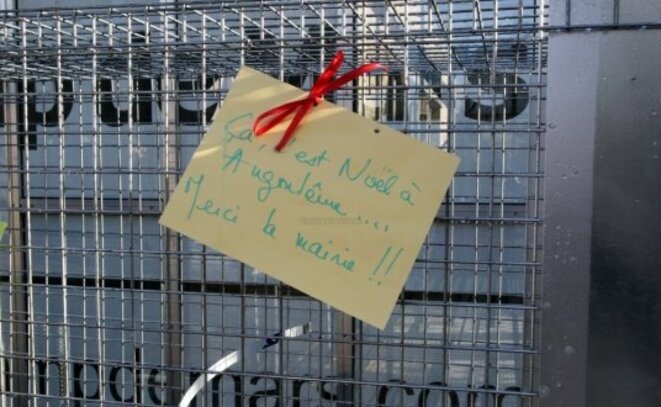 Ça, c'est Noël à
Angoulême....
Merci la mairie !!
mpdemars.com